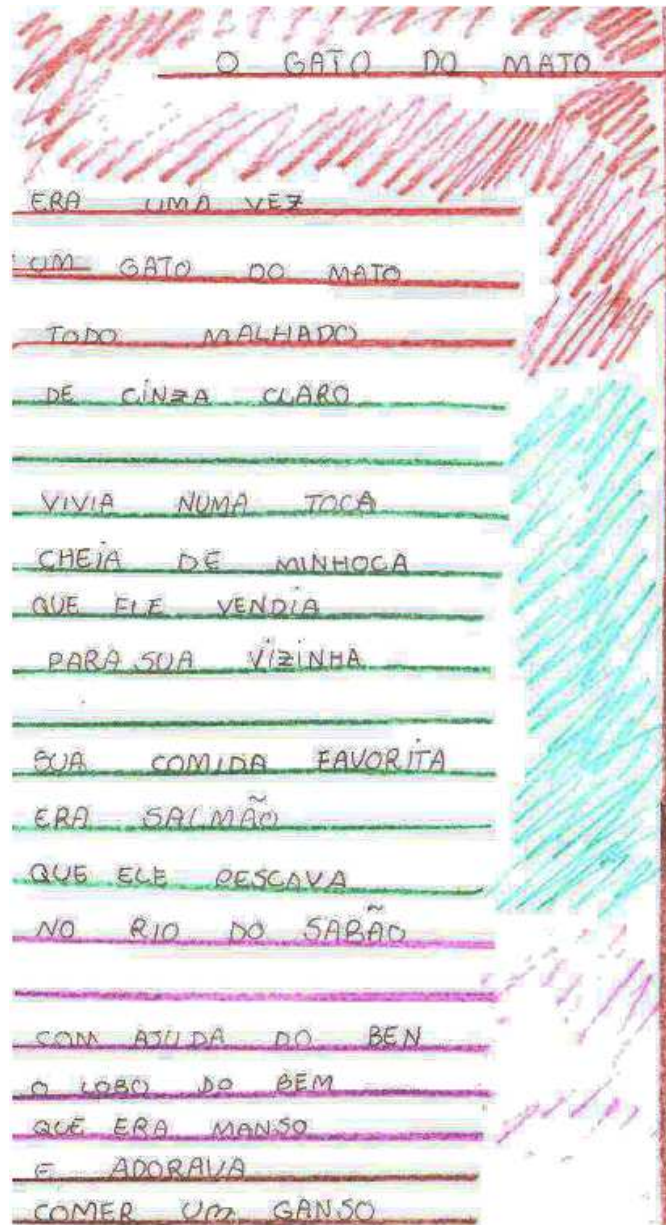 O GATO DO MATO
ERA UMA VEZ
UM GATO DO MATO
TODO MALHADO
DE CINZA CLARO
VIVIA NUMA TOCA
CHEIA DE MINHOCA
QUE ELE VENDIA
PARA SUA VIZINHA
SUA COMIDA FAVORITA
ERA SALMÃO
QUE ELE PESCAVA
NO RIO DO SABÃO
COM AJUDA DO BEN
O LOBO DO BEM
QUE ERA MANSO
E ADORAVA
COMER UM GANSO